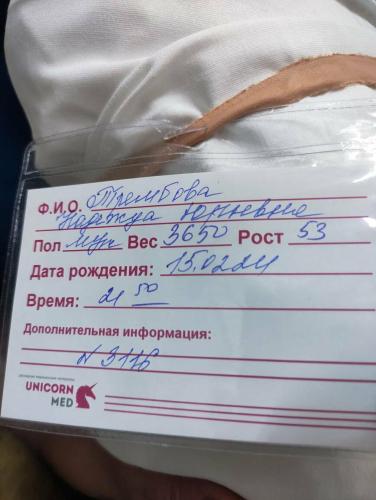 Ф.И.О. Трембова
Надежда Юрьевна
Пол муж Вес 3650 Рост 53
Дата рождения: 15.02.24
Время: 21 50
Дополнительная информация:
N 3116
UNICORN
MED